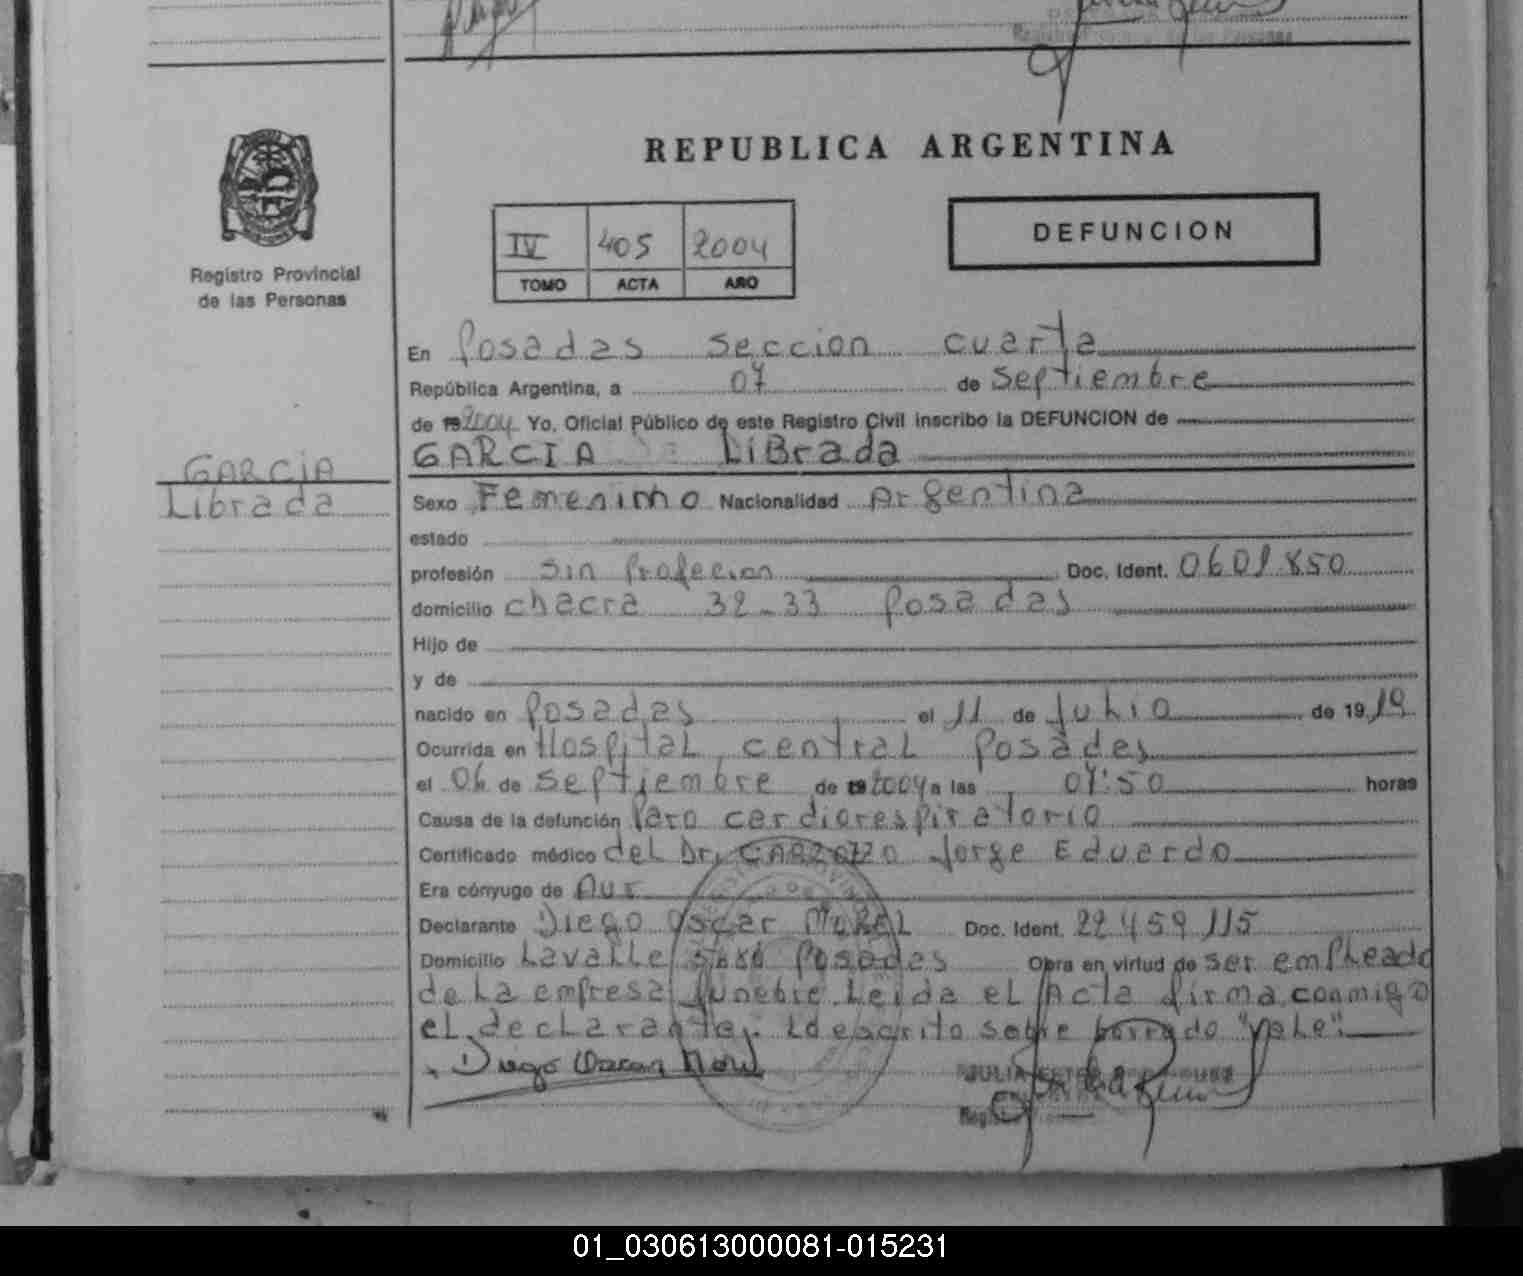 REPUBLICA ARGENTINA
Registro Provincial
de las Personas
IV 405 2004
TOMO ACTA AÑO
DEFUNCION
GARCIA
Librada
En Posadas seccion cuarta
República Argentina, a 07 de septiembre
de 192004 Yo, Oficial Público de este Registro Civil inscribo la DEFUNCION de
GARCIA LiBrada
Sexo Femenino Nacionalidad Argentina
estado
profesión sin Profecion Doc. Ident. 0601.850
domicilio chacra 32-33 Posadas
Hijo de
y de
nacido en Posadas el 11 de Julio de 1919
Ocurrida en Hospital central Posadas
el 06 de septiembre de 192004 a las 07:50 horas
Causa de la defunción Paro cardiorespiratorio
Certificado médico del Dr. Jorge Eduardo
Era cónyuge de
Declarante Diego Oscar MOREL Doc. Ident. 22.459.115
Domicilio Lavalle Posadas Obra en virtud de ser empleado
de la empresa funebre Leida el Acta firma conmigo
el declarante. Lo escrito sobre borrado "vale".
Diego Oscar Morel
JULIA ESTER
01_030613000081-015231